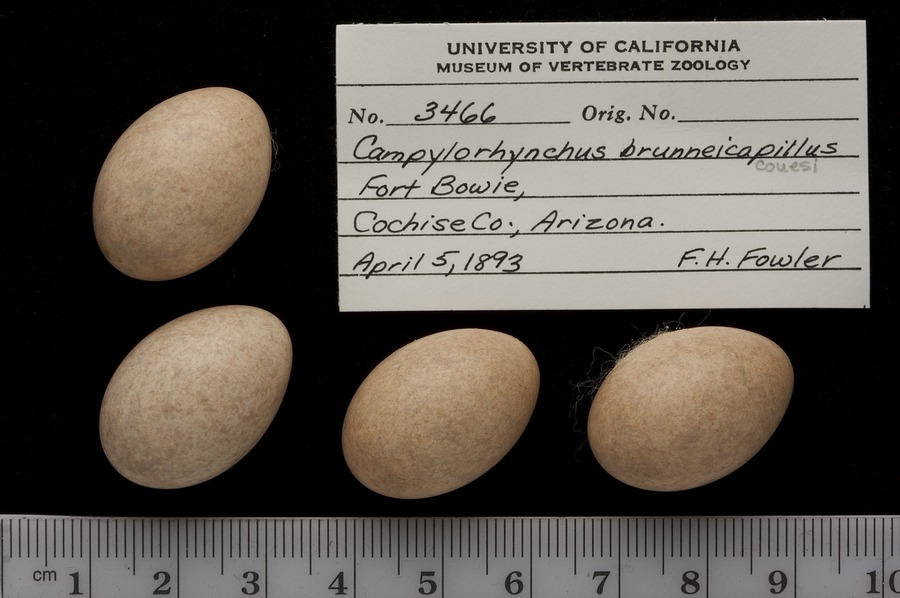 UNIVERSITY OF CALIFORNIA
MUSEUM OF VERTEBRATE ZOOLOGY
No. 3466 Orig. No.
Campylorhynchus brunneicapillus
couesi
Fort Bowie,
Cochise Co., Arizona.
April 5, 1893 F.H. Fowler
cm 1 2 3 4 5 6 7 8 9 10